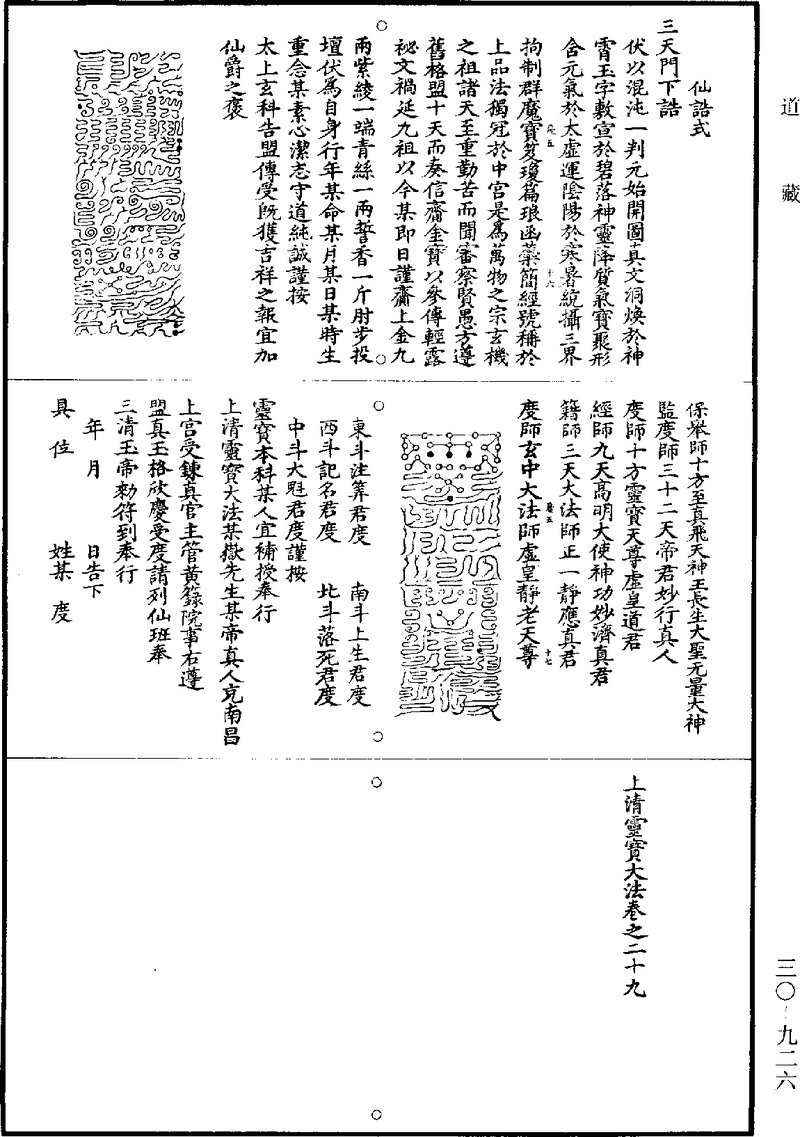 道藏
仙誥式
三天門下誥
伏以混沌一判元始開圖真文洞煥於神
霄玉字敷宣於碧落神靈降質氣寶聚形
含元氣於太虛運陰陽於寒暑統攝三界
拘制群魔寶笈瓊篇琅函蘂簡經號稱於
上品法獨冠於中宮是為萬物之宗玄機
之祖諸天至重勤苦而聞審察賢愚方遵
舊格盟十天而奏信齎金寶以參傳輕露
祕文禍延九祖以今某即日謹齎上金九
兩紫綾一端青絲一兩誓香一斤肘步投
壇伏為自身行年某命某月某日某時生
重念某素心潔志守道純誠謹按
太上玄科告盟傳受旣獲吉祥之報宜加
仙爵之褒
保舉師十方至真飛天神王長生大聖无量大神
監度師三十二天帝君妙行真人
度師十方靈寶天尊虛皇道君
經師九天高明大使神功妙濟真君
籍師三天大法師正一靜應真君
度師玄中大法師虛皇靜老天尊
東斗注筭君度 南斗上生君度
西斗記名君度 北斗落死君度
中斗大魁君度謹按
靈寶本科某人宜補授奉行
上清靈寶大法某嶽先生某帝真人充南昌
上宮受鍊真官主管黃籙院事右遵
盟真玉格欣慶受度請列仙班奉
三清玉帝勑符到奉行
年 月 日告下
具位 姓某 度
上清靈寶大法卷之二十九
三〇-九二六